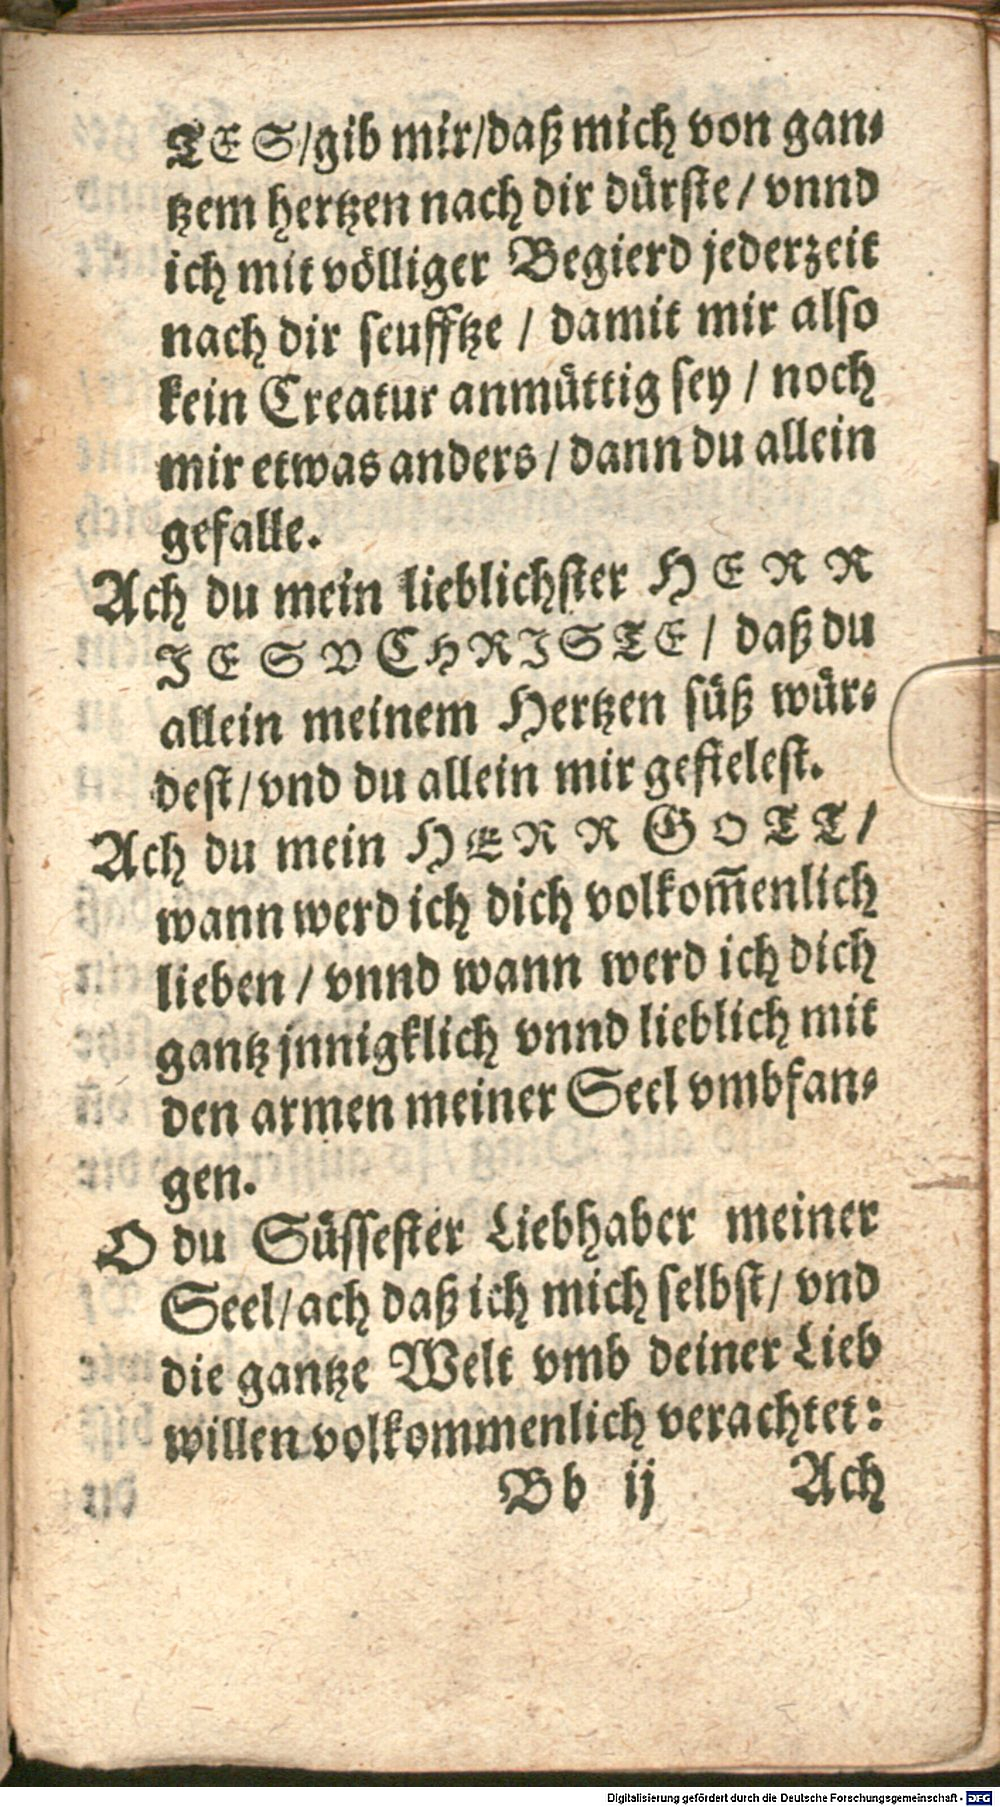 TES/gib mir/daß mich von gan⸗
tzem hertzen nach dir dürste / vnnd
ich mit völliger Begierd jederzeit
nach dir seufftze / damit mir also
kein Creatur anmüttig sey / noch
mir etwas anders / dann du allein
gefalle.
Ach du mein lieblichster HERR
JESV CHRISTE / daß du
allein meinem Hertzen süß wür⸗
dest / vnd du allein mir gefielest.
Ach du mein HERR GOTT /
wann werd ich dich volkom̃enlich
lieben / vnnd wann werd ich dich
gantz jnnigklich vnnd lieblich mit
den armen meiner Seel vmbfan⸗
gen.
O du Süssester Liebhaber meiner
Seel / ach daß ich mich selbst / vnd
die gantze Welt vmb deiner Lieb
willen volkommenlich verachtet:
Bb ij Ach
Digitalisierung gefördert durch die Deutsche Forschungsgemeinschaft - DFG